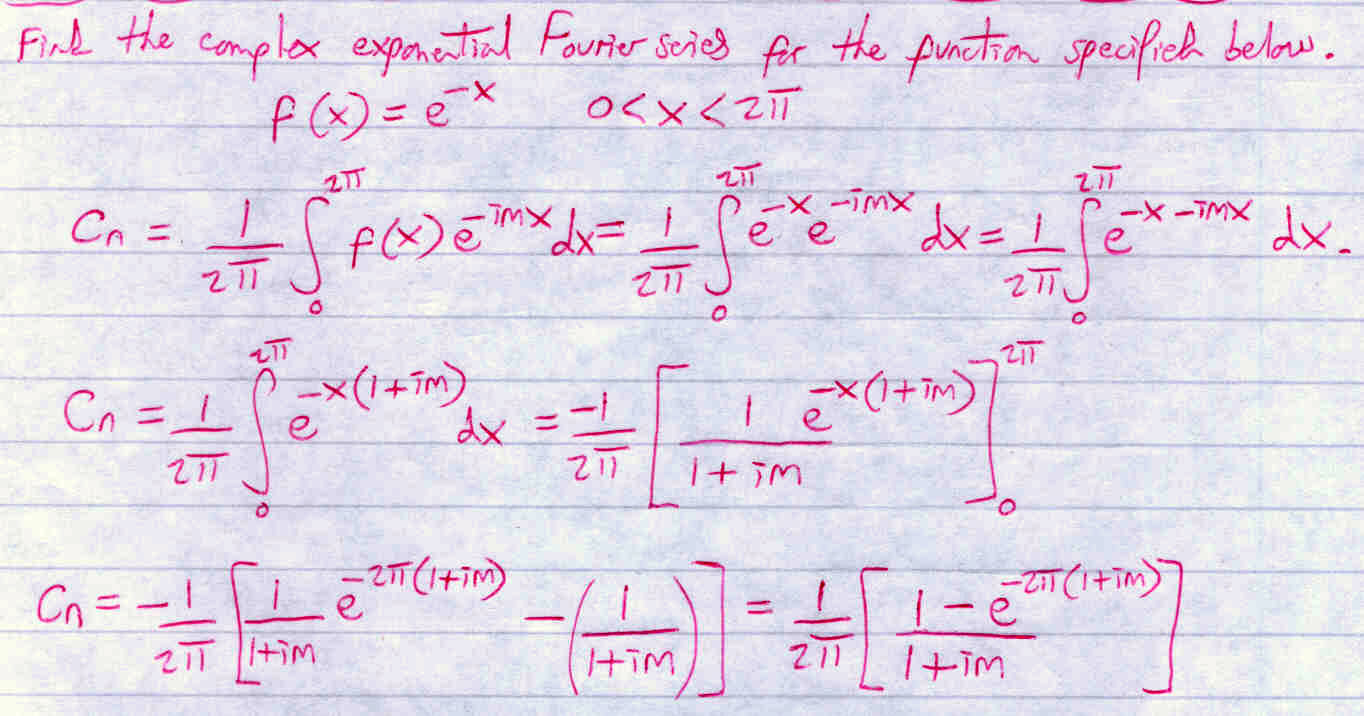 Find the complex exponential Fourier series for the function specified below.
f(x) = e^{-x} 0<x<2π
C_n = \frac{1}{2π} ∫_0^{2π} f(x) e^{-inx} dx = \frac{1}{2π} ∫_0^{2π} e^{-x} e^{-inx} dx = \frac{1}{2π} ∫_0^{2π} e^{-x-inx} dx.
C_n = \frac{1}{2π} ∫_0^{2π} e^{-x(1+in)} dx = \frac{-1}{2π} [\frac{1}{1+in} e^{-x(1+in)}]_0^{2π}
C_n = -\frac{1}{2π} [\frac{1}{1+in} e^{-2π(1+in)} - (\frac{1}{1+in})] = \frac{1}{2π} [\frac{1-e^{-2π(1+in)}}{1+in}]